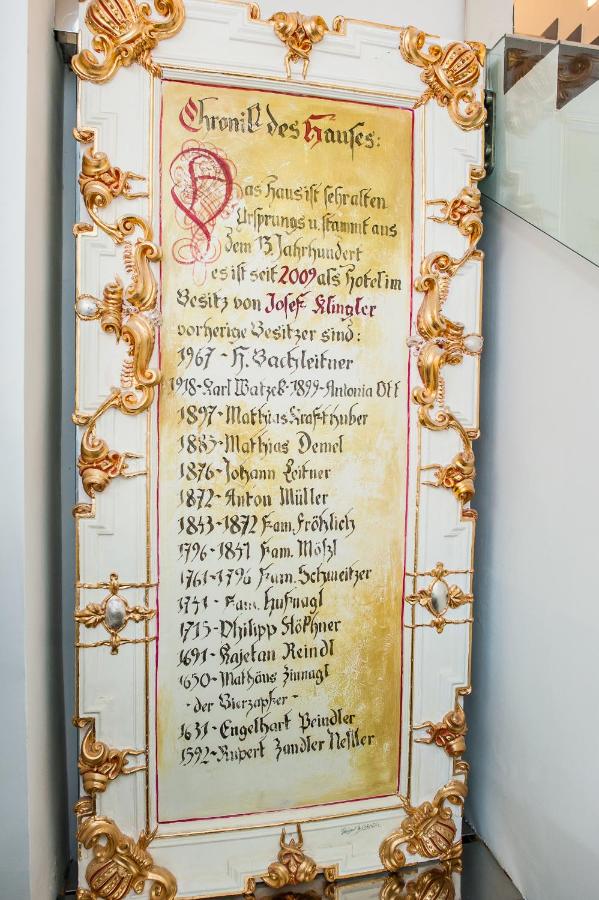 Chronik des Hauses:
Das Haus ist sehr alten
Ursprungs u. stammt aus
dem 13. Jahrhundert
es ist seit 2009 als Hotel im
Besitz von Josef Klingler
vorherige Besitzer sind:
1967 - H. Bachleitner
1918 - Karl Watzek - 1899 - Antonia Ott
1897 - Mathias Krafthuber
1883 - Mathias Demel
1876 - Johann Leitner
1872 - Anton Müller
1843 - 1872 Fam. Fröhlich
1796 - 1841 Fam. Mößl
1761 - 1796 Fam. Schweitzer
1741 - Fam. Hufnagl
1715 - Philipp Stökhner
1691 - Kajetan Reindl
1650 - Mathäus Zinnagl
- der Bierzapfer -
1631 - Engelhart Peindler
1592 - Rupert Zandler